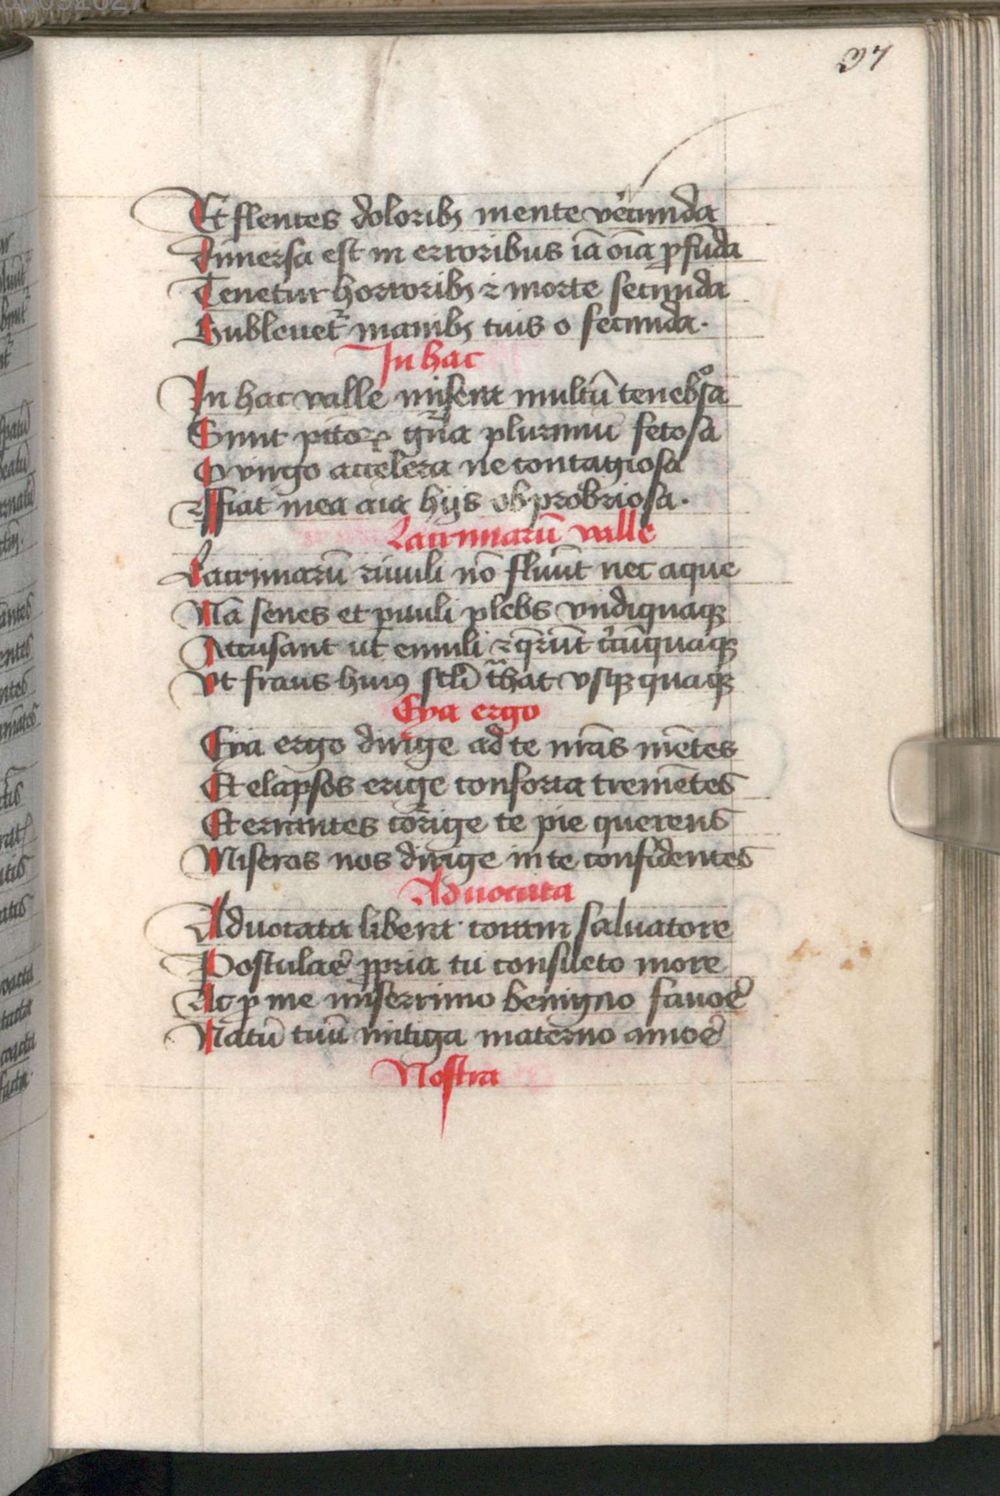 37
Et flentes doloribꝫ mente vecunda
Inmersa est in erroribus iā oīa ꝓfūda
Tenetur horroribꝫ ⁊ morte secunda
Subleuet᷑ manibꝫ tuis o fecunda.
In hac
In hac valle misera multū tenebᷣosa
Sunt pctoꝝ gn̄a plurimū fetosa
O virgo accelera ne contagiosa
Fiat mea aīa hijs obprobriosa.
Lacrimarū valle
Lacrimarū riuuli nō fluūt nec aque
Nā senes et ꝑuuli plebs vndiquaqꝫ
Accusant ut emuli ⁊ qᷣrūt
Ut fraus huiꝰ scłi usqꝫquaqꝫ
Eya ergo
Eya ergo dirige ad te nr̄as mētes
Et elapsos erige conforta tremētes
Et errantes cōrige te pie querens
Miseros nos dirige in te confidentes
Advocata
Advocata libera coram salvatore
Postulaē ꝓpria tu consueto more
Ac ꝑ me miserrimo benigno favoē
Natū tuū mitiga materno amoē
Nostra